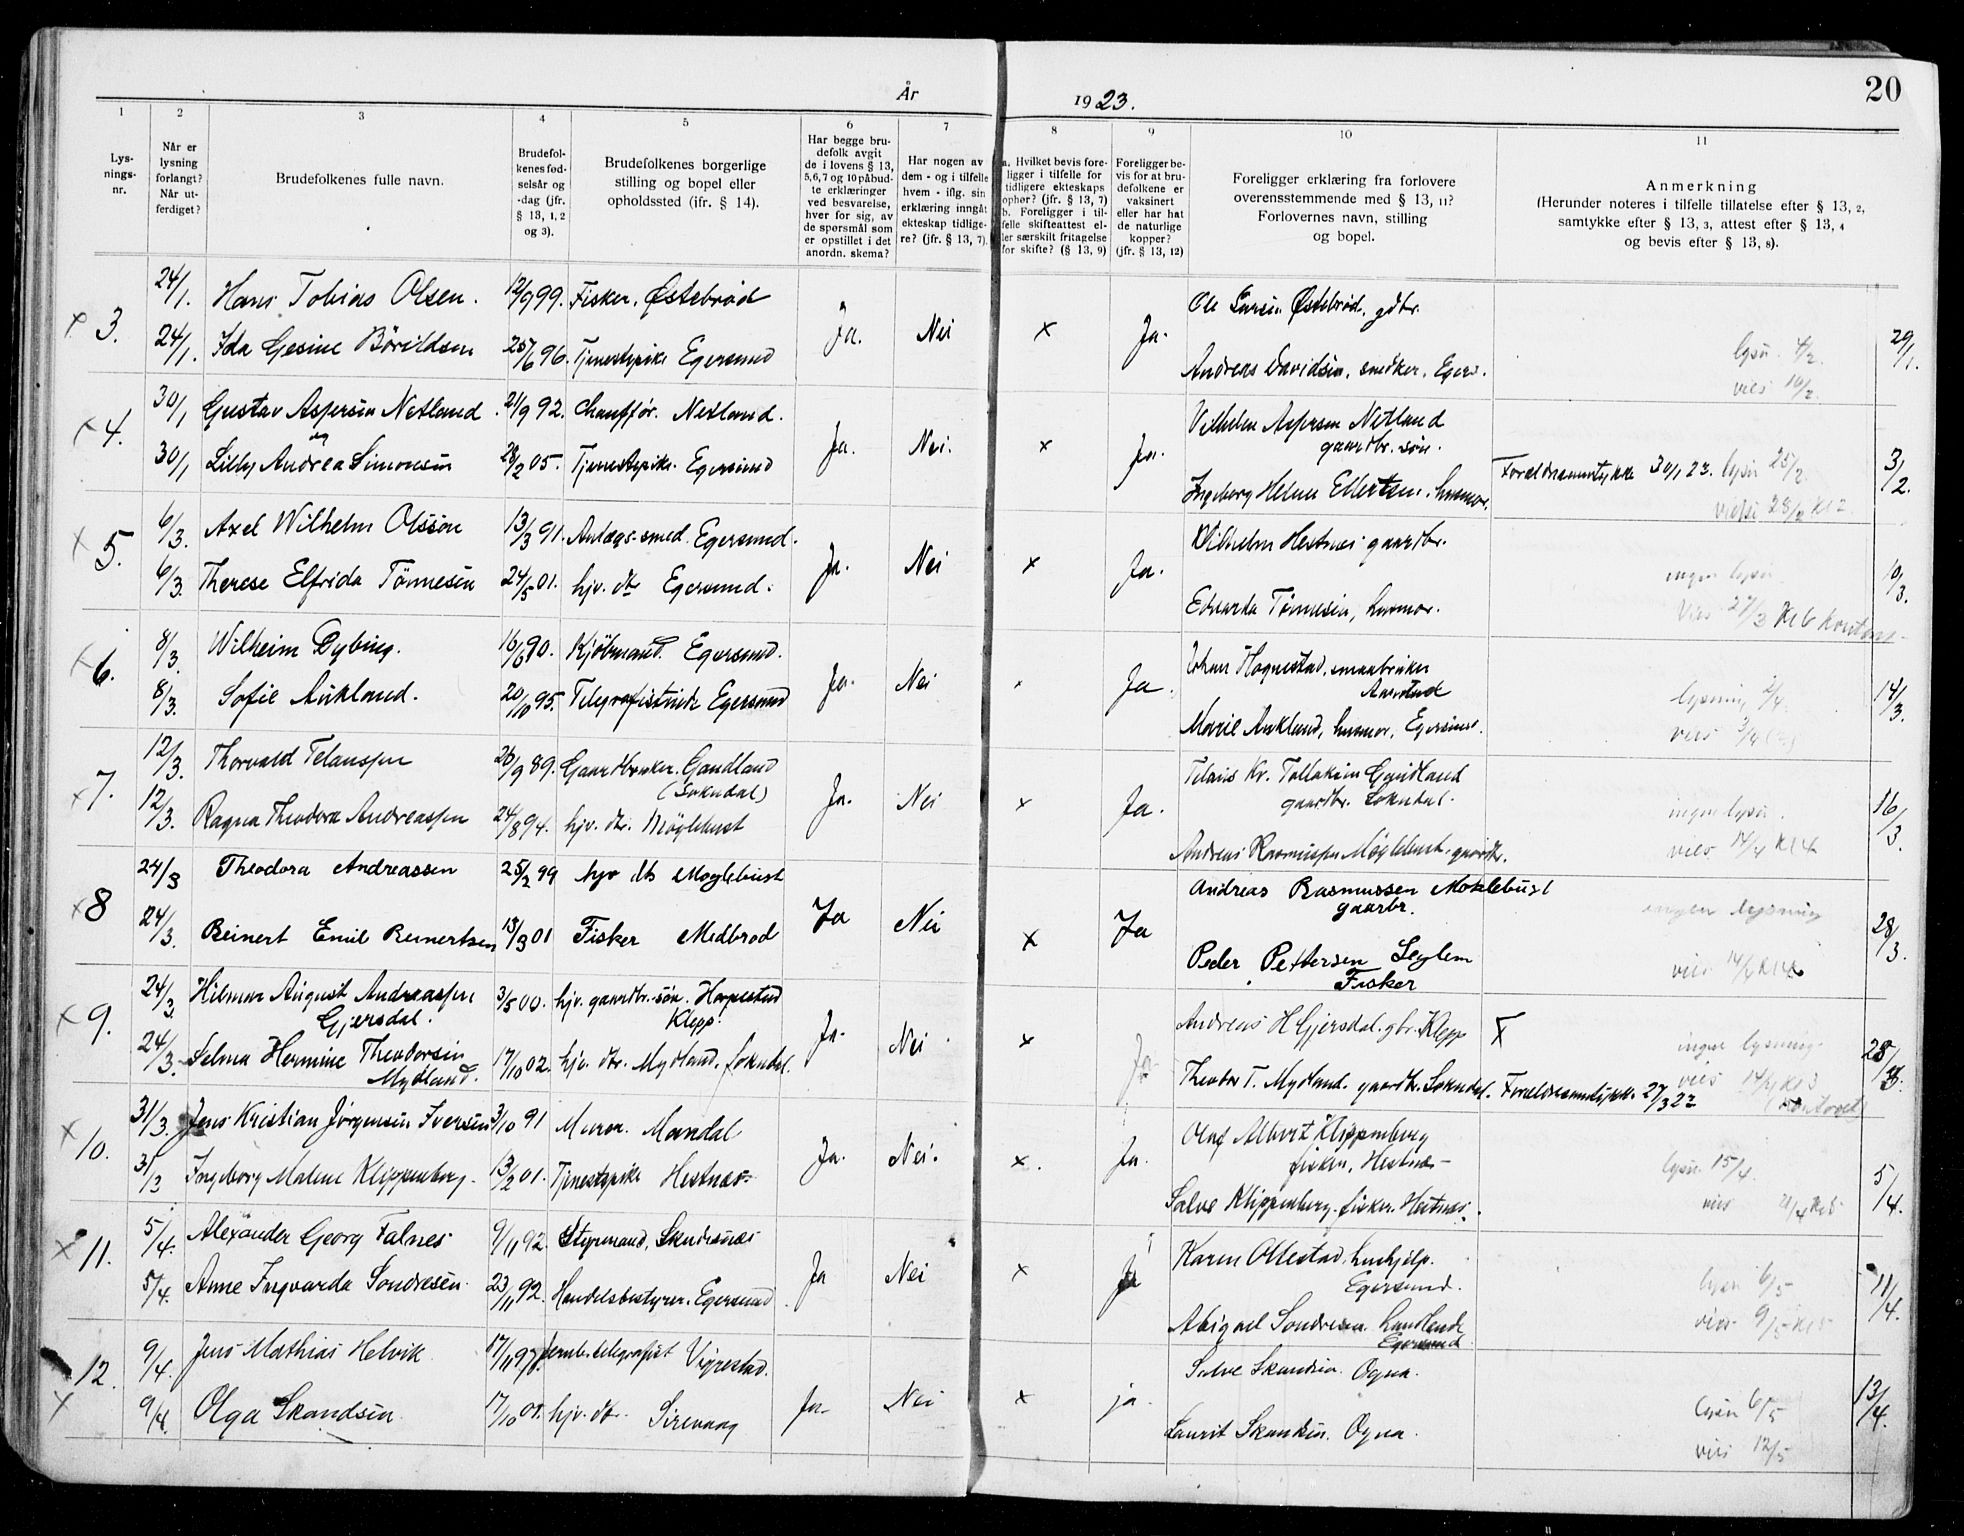 20
År 1923.
1
2
3
4
5
6
7
8
9
10
11
Lys-
nings-
nr.
Når er
lysning
forlangt?
Når ut-
ferdiget?
Brudefolkenes fulle navn.
Brudefol-
kenes fød-
selsår og
-dag (jfr.
§ 13, 1, 2
og 3).
Brudefolkenes borgerlige
stilling og bopel eller
opholdssted (ifr. § 14).
Har begge bru-
defolk avgit
de i lovens § 13,
5, 6, 7 og 10 påbud-
te erklæringer
ved besvarelse,
hver for sig, av
de spørsmål som
er opstillet i det
anordn. skema?
Har nogen av
dem - og i tilfelle
hvem - iflg. sin
erklæring inngåt
ekteskap tidlige-
re? (jfr. § 13, 7).
a. Hvilket bevis fore-
ligger i tilfelle for
tidligere ekteskaps
ophør? (jfr. § 13, 7)
b. Foreligger i til-
felle skifteattest el-
ler særskilt fritagelse
for skifte? (§ 13, 9)
Foreligger be-
vis for at bru-
defolkene er
vaksinert
eller har hat
de naturlige
kopper?
(jfr. § 13, 12)
Foreligger erklæring fra forlovere
overensstemmende med § 13, 11?
Forlovernes navn, stilling
og bopel.
Anmerkning
(Herunder noteres i tilfelle tillatelse efter § 13, 2,
samtykke efter § 13, 3, attest efter § 13, 4
og bevis efter § 13, 8).
24/1. Hans Tobias Olsen. 12/9 99. Fisker, Østebrød Ole Larsen Østebrød, gdbr.
x 3. Ja. Nei x Ja. lysn. 4/2. 29/1.
24/1. Ida Gesine Børildsen 25/6 96. Tjenestepike Egersund Andreas Davidsen, snedker, Egers. vies 10/2.
30/1 Gustav Aspersen Netland. 21/9 92. Chauffør. Netland. Vilhelm Aspersen Netland
gaardbr. søn.
x 4. og Ja. Nei. x Ja. 3/2.
30/1 Lilly Andrea Simonsen 28/2 05. Tjenestepike. Egersund Ingeborg Helene Ellertsen, husmor. Forældresamtykke 30/1 23. lysn 25/2.
vies 28/2 kl 2.
6/3. Axel Wilhelm Olsson 13/3 91. Anlægs-smed. Egersund. Wilhelm Hestnes gaardbr.
x 5. Ja. Nei x Ja. ingen lysn. 10/3.
6/3. Therese Elfrida Tønnesen 24/5 01. hjv. dtr Egersund. Edvarda Tønnesen, husmor. Vies 27/3 Kl 6 kontoret
8/3. Wilhelm Dybing. 16/6 90. Kjøbmand. Egersund. Johan Hognestad, smaabruker
Aarstad
x 6. Ja. Nei Ja. lysning 2/4. 14/3.
8/3. Sofie Aukland. 20/10 95. Telegrafistinde Egersund Marie Aukland, husmor, Egersund. vies 3/4
12/3. Thorvald Telaussen 26/9 89. Gaardbruker. Gaudland
(Sokndal) Telaus Kr. Tollaksen Gaudland
gaardbr. Sokndal.
x 7. Ja. Nei x Ja. ingen lysn. 16/3.
12/3. Ragna Theodora Andreassen 24/8 94. hjv. dtr. Møglebust Andreas Rasmussen Møglebust, gaardbr. vies 14/4 kl 4
24/3 Theodora Andreassen 25/2 99 hjv dts Møglebust Andreas Rasmussen Moklebust
gaarbr.
x 8 Ja Nei x Ja ingen lysning 28/3.
24/3. Reinert Emil Reinertsen 13/3 01 Fisker Medbrød Peder Pettersen Seglem
Fisker vies 14/4 kl 4
24/3. Hilmar August Andreassen
Gjersdal. 3/5 00. hjv. gaardbr. søn. Horpestad
Klepp. Andreas H Gjersdal. gbr. Klepp x
x 9. Ja. Nei x Ja ingen lysning. 28/3.
24/3. Selma Hermine Theodorsen
Mydland. 17/10 02. hjv. dtr. Mydland, Sokndal. Theodor T. Mydland. gaardbr. Sokndal. Forældresamtykke 27/3 23 vies 14/4 kl 3
(kontoret)
31/3. Jens Kristian Jørgensen Iversen 3/10 91 Murer. Mandal Olaf Albert Klippenberg
fisker, Hestnes
x 10. Ja. Nei. x. Ja. lysn. 15/4. 5/4.
31/3 Ingeborg Malene Klippenberg. 13/2 01. Tjenestepike Hestnes Salve Klippenberg. fisker. Hestnes. vies 21/4 kl 5
5/4. Alexander Georg Falnes 9/11 92. Styrmand, Skudesnes Karen Ollestad, hushjelp.
Egersund.
x 11. Ja Nei x Ja lysn 6/5 11/4.
5/4. Anne Ingvarda Sondresen. 23/11 92. Handelsbestyrer. Egersund. Abigael Sondresen. handlende
Egersund. vies 9/5 kl 5
9/4. Jens Mathias Helvik 17/11 97. Jernb. telegrafist Vigrestad. Salve Skandsen. Ogna.
x 12. Ja. Nei x ja. lysn 6/5 13/4.
9/4. Olga Skandsen. 17/10 01. hjv. dtr. Sirevaag Laurit Skandsen. Ogna. vies 12/5